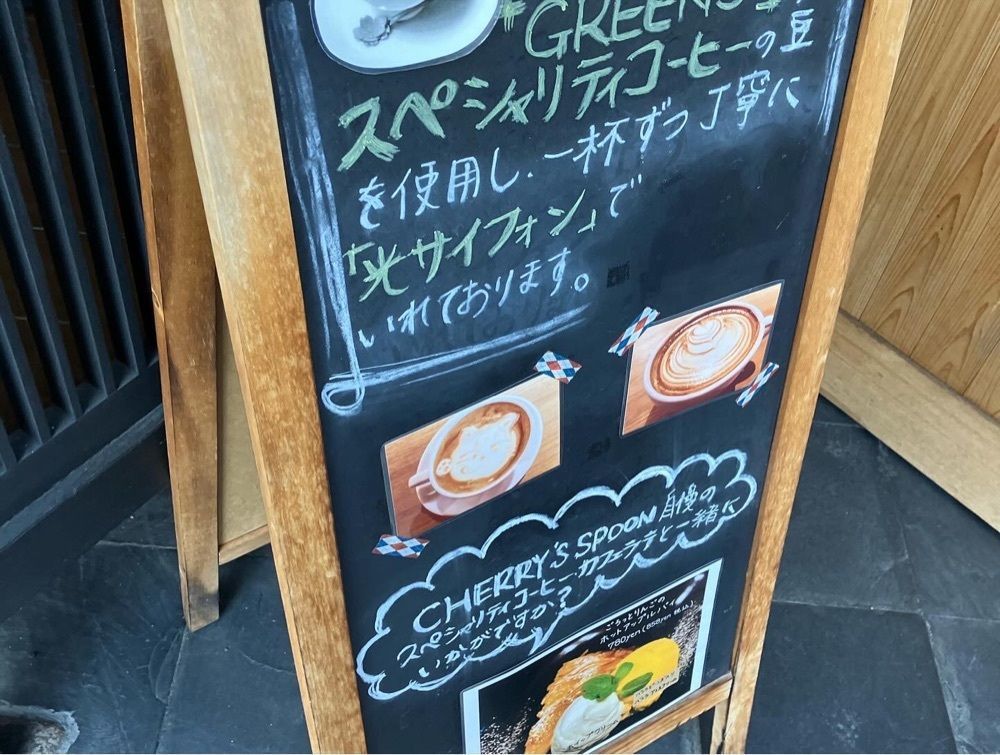 GREENS
スペシャリティコーヒーの豆
を使用し、一杯ずつ丁寧に
「光サイフォン」で
いれております。
CHERRY'S SPOON 自慢の
スペシャリティコーヒー、カフェラテと一緒に
いかがですか?
ごろっとりんごの
ホットアップルパイ
780yen(858yen 税込)